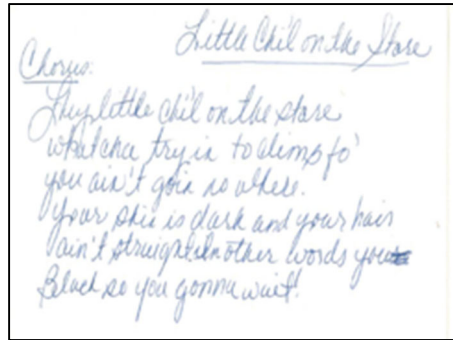 Little Chi'l on the Stare
Chorus:
Hey little chi'l on the stare
whatcha try in to climp fo'
you ain't goin no where.
Your skin is dark and your hair
ain't straight in other words you
Black so you gonna wait!